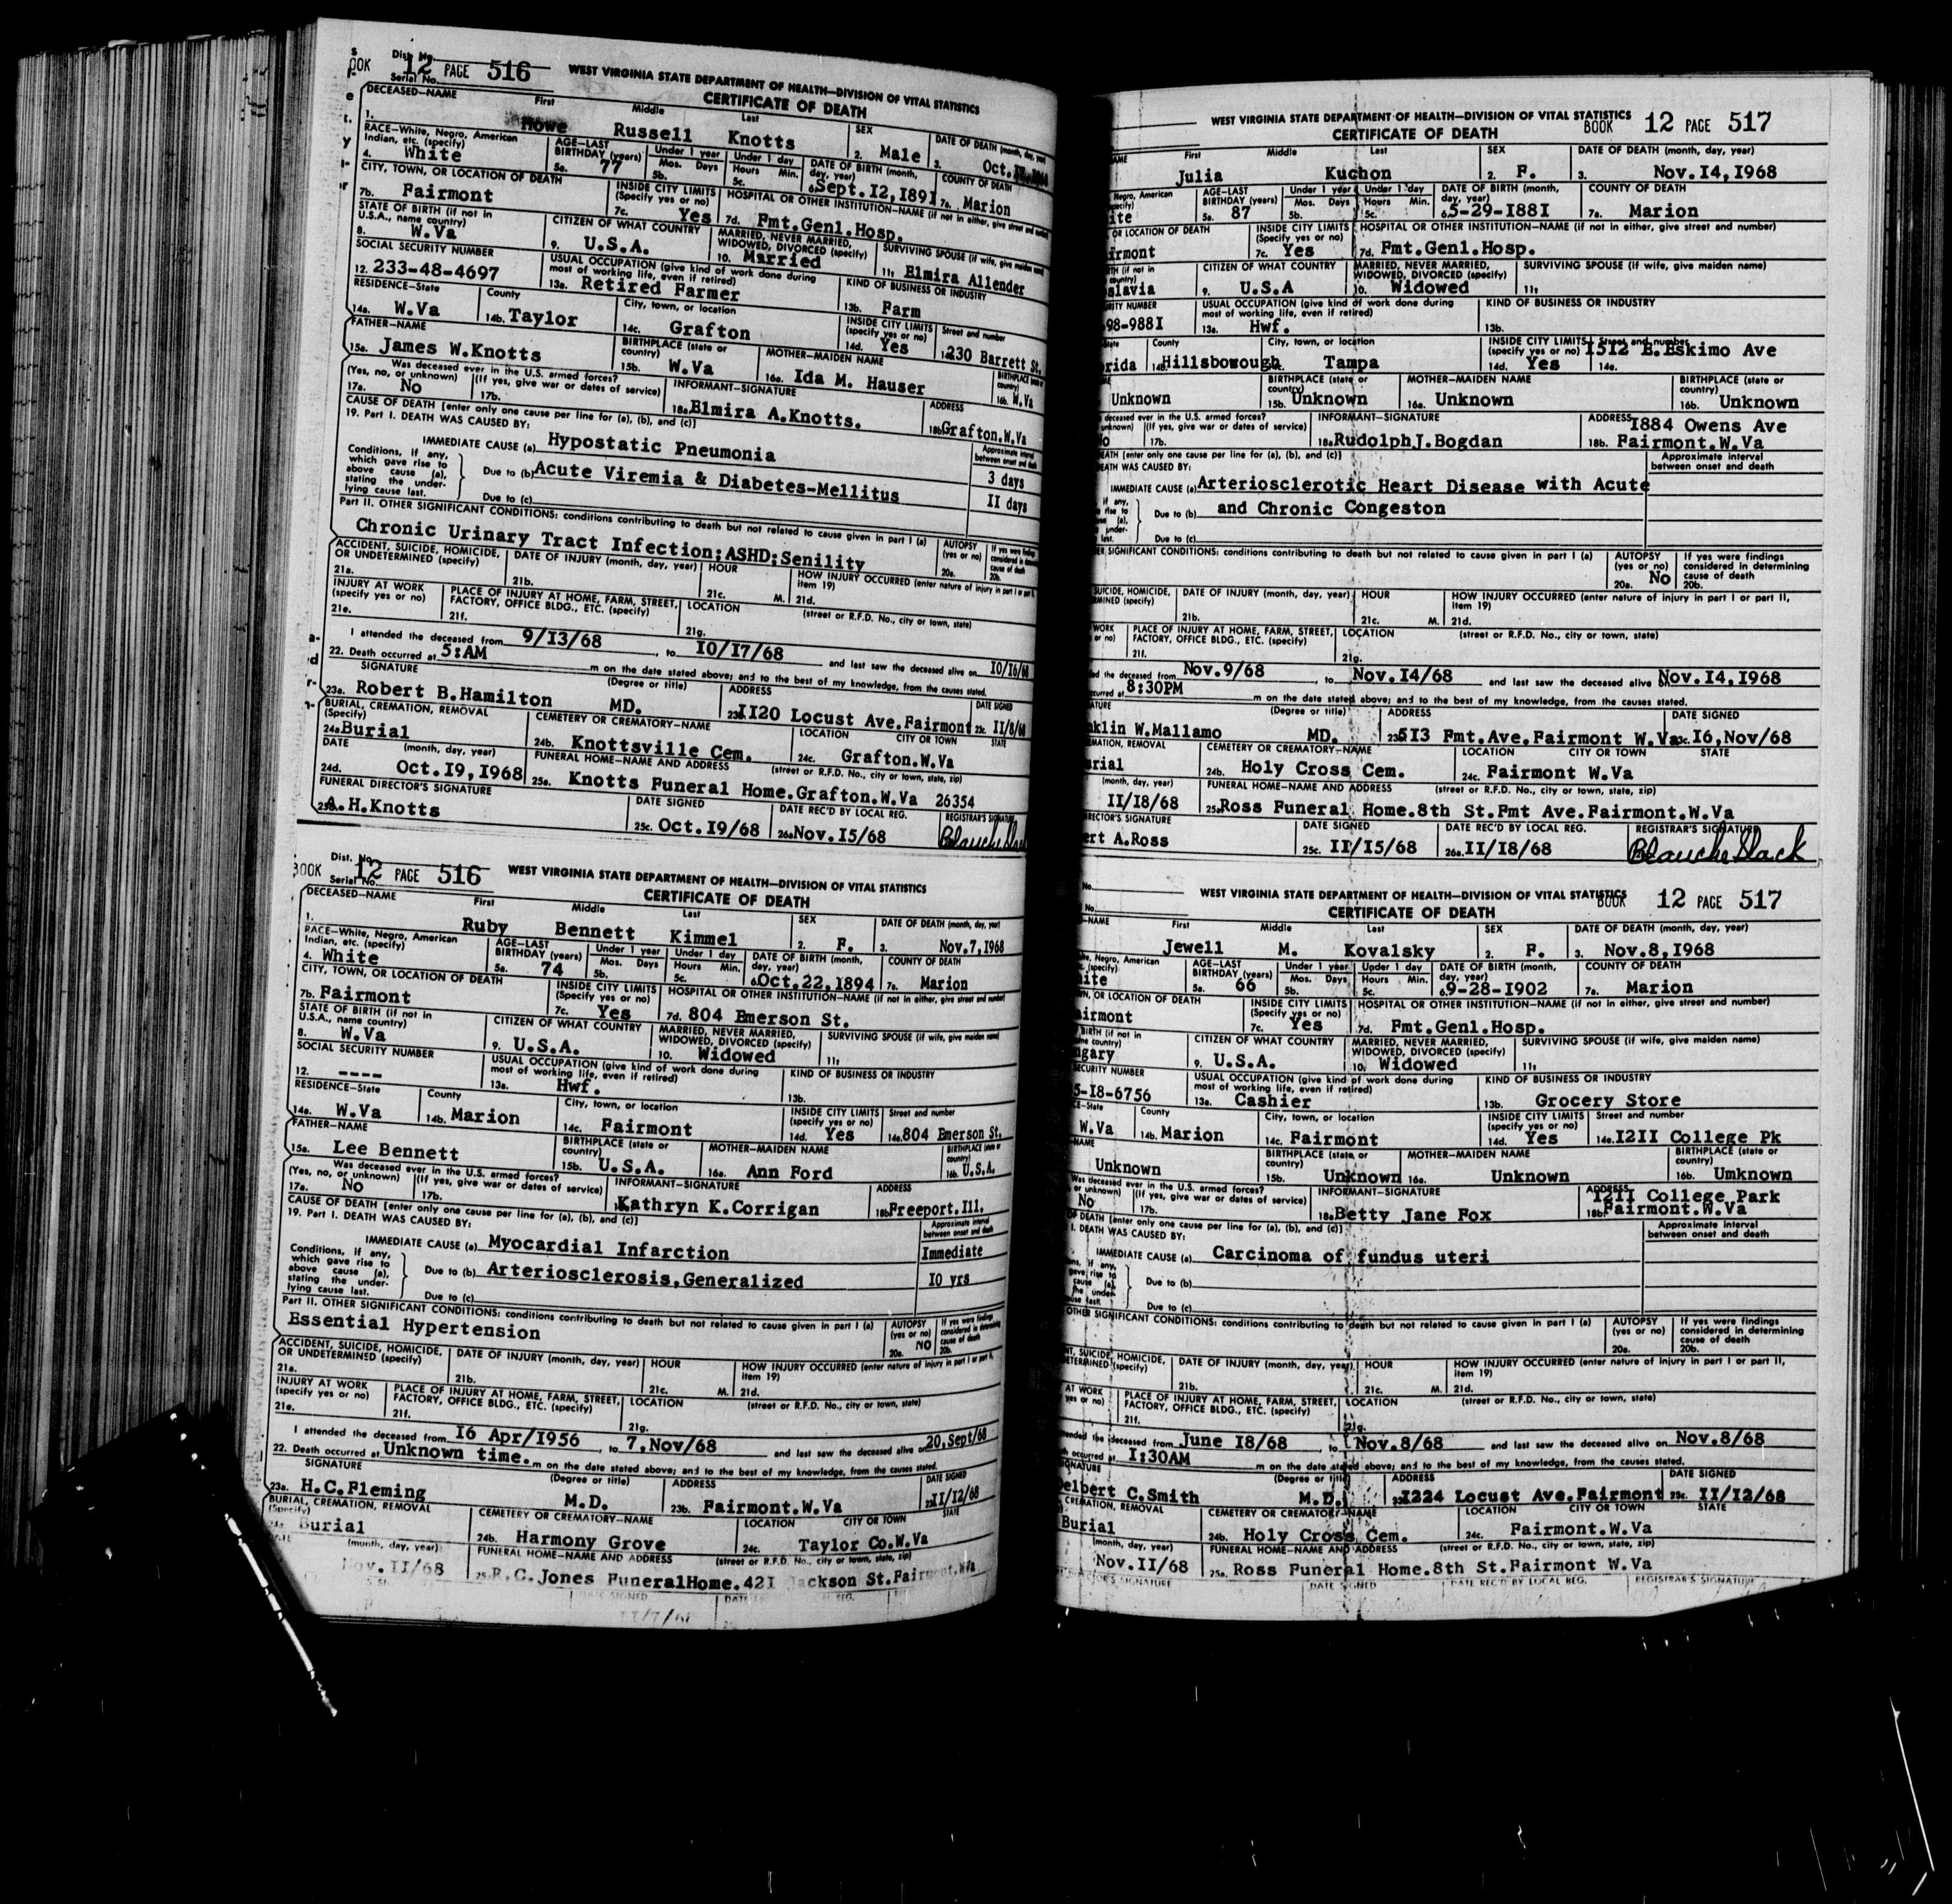 BOOK 12 PAGE 516 WEST VIRGINIA STATE DEPARTMENT OF HEALTH—DIVISION OF VITAL STATISTICS
Dist. No.
Serial No. CERTIFICATE OF DEATH
DECEASED—NAME First Middle Last SEX DATE OF DEATH (month, day, year)
1. Howe Russell Knotts 2. Male 3. Oct.
RACE—White, Negro, American Indian, etc. (specify) AGE—LAST BIRTHDAY (years) Under 1 year Under 1 day DATE OF BIRTH (month, day, year) COUNTY OF DEATH
4. White 5a. 77 5b. Mos. Days 5c. Hours Min. 6. Sept.I2,I89I 7a. Marion
CITY, TOWN, OR LOCATION OF DEATH INSIDE CITY LIMITS (Specify yes or no) HOSPITAL OR OTHER INSTITUTION—NAME (if not in either, give street and number)
7b. Fairmont 7c. Yes 7d. Fmt.Genl.Hosp.
STATE OF BIRTH (if not in U.S.A., name country) CITIZEN OF WHAT COUNTRY MARRIED, NEVER MARRIED, WIDOWED, DIVORCED (specify) SURVIVING SPOUSE (if wife, give maiden name)
8. W.Va 9. U.S.A. 10. Married 11. Elmira Allender
SOCIAL SECURITY NUMBER USUAL OCCUPATION (give kind of work done during most of working life, even if retired) KIND OF BUSINESS OR INDUSTRY
12. 233-48-4697 13a. Retired Farmer 13b. Farm
RESIDENCE—State County City, town, or location INSIDE CITY LIMITS (specify yes or no) Street and number
14a. W.Va 14b. Taylor 14c. Grafton 14d. Yes 230 Barrett St.
FATHER—NAME BIRTHPLACE (state or country) MOTHER—MAIDEN NAME BIRTHPLACE (state or country)
15a. James W.Knotts 15b. W.Va 16a. Ida M. Hauser 16b. W.Va
Was deceased ever in the U.S. armed forces? (Yes, no, or unknown) (If yes, give war or dates of service) INFORMANT—SIGNATURE ADDRESS
17a. No 17b. 18a. Elmira A.Knotts. 18b. Grafton.W.Va
CAUSE OF DEATH [enter only one cause per line for (a), (b), and (c)]
19. Part I. DEATH WAS CAUSED BY: Approximate interval between onset and death
IMMEDIATE CAUSE (a) Hypostatic Pneumonia 3 days
Conditions, if any, which gave rise to above cause (a), stating the underlying cause last. Due to (b) Acute Viremia & Diabetes-Mellitus II days
Due to (c)
Part II. OTHER SIGNIFICANT CONDITIONS: conditions contributing to death but not related to cause given in part I (a) AUTOPSY (yes or no) If yes were findings considered in determining cause of death
Chronic Urinary Tract Infection;ASHD;Senility 20a. 20b.
ACCIDENT, SUICIDE, HOMICIDE, OR UNDETERMINED (specify) DATE OF INJURY (month, day, year) HOUR HOW INJURY OCCURRED (enter nature of injury in part I or part II, item 19)
21a. 21b. 21c. M. 21d.
INJURY AT WORK (specify yes or no) PLACE OF INJURY AT HOME, FARM, STREET, FACTORY, OFFICE BLDG., ETC. (specify) LOCATION (street or R.F.D. No., city or town, state)
21e. 21f. 21g.
I attended the deceased from 9/I3/68 , to IO/I7/68 and last saw the deceased alive on IO/I6/68
22. Death occurred at 5:AM m on the date stated above; and to the best of my knowledge, from the causes stated.
SIGNATURE (Degree or title) ADDRESS DATE SIGNED
23a. Robert B.Hamilton MD. 23b. II20 Locust Ave.Fairmont 23c. II/8/68
BURIAL, CREMATION, REMOVAL (Specify) CEMETERY OR CREMATORY—NAME LOCATION CITY OR TOWN STATE
24a. Burial 24b. Knottsville Cem. 24c. Grafton.W.Va
DATE (month, day, year) FUNERAL HOME—NAME AND ADDRESS (street or R.F.D. No., city or town, state, zip)
24d. Oct.I9,I968 25a. Knotts Funeral Home.Grafton.W.Va 26354
FUNERAL DIRECTOR'S SIGNATURE DATE SIGNED DATE REC'D BY LOCAL REG. REGISTRAR'S SIGNATURE
25b. A.H.Knotts 25c. Oct.I9/68 26a. Nov.I5/68 Blanche
BOOK 12 PAGE 516 WEST VIRGINIA STATE DEPARTMENT OF HEALTH—DIVISION OF VITAL STATISTICS
Dist. No.
Serial No. CERTIFICATE OF DEATH
DECEASED—NAME First Middle Last SEX DATE OF DEATH (month, day, year)
1. Ruby Bennett Kimmel 2. F. 3. Nov.7,I968
RACE—White, Negro, American Indian, etc. (specify) AGE—LAST BIRTHDAY (years) Under 1 year Under 1 day DATE OF BIRTH (month, day, year) COUNTY OF DEATH
4. White 5a. 74 5b. Mos. Days 5c. Hours Min. 6. Oct.22,I894 7a. Marion
CITY, TOWN, OR LOCATION OF DEATH INSIDE CITY LIMITS (Specify yes or no) HOSPITAL OR OTHER INSTITUTION—NAME (if not in either, give street and number)
7b. Fairmont 7c. Yes 7d. 804 Emerson St.
STATE OF BIRTH (if not in U.S.A., name country) CITIZEN OF WHAT COUNTRY MARRIED, NEVER MARRIED, WIDOWED, DIVORCED (specify) SURVIVING SPOUSE (if wife, give maiden name)
8. W.Va 9. U.S.A. 10. Widowed 11.
SOCIAL SECURITY NUMBER USUAL OCCUPATION (give kind of work done during most of working life, even if retired) KIND OF BUSINESS OR INDUSTRY
12. ---- 13a. Hwf. 13b.
RESIDENCE—State County City, town, or location INSIDE CITY LIMITS (specify yes or no) Street and number
14a. W.Va 14b. Marion 14c. Fairmont 14d. Yes 14e. 804 Emerson St.
FATHER—NAME BIRTHPLACE (state or country) MOTHER—MAIDEN NAME BIRTHPLACE (state or country)
15a. Lee Bennett 15b. U.S.A. 16a. Ann Ford 16b. U.S.A.
Was deceased ever in the U.S. armed forces? (Yes, no, or unknown) (If yes, give war or dates of service) INFORMANT—SIGNATURE ADDRESS
17a. No 17b. Kathryn K.Corrigan 18b. Freeport.Ill.
CAUSE OF DEATH [enter only one cause per line for (a), (b), and (c)]
19. Part I. DEATH WAS CAUSED BY: Approximate interval between onset and death
IMMEDIATE CAUSE (a) Myocardial Infarction Immediate
Conditions, if any, which gave rise to above cause (a), stating the underlying cause last. Due to (b) Arteriosclerosis,Generalized IO yrs
Due to (c)
Part II. OTHER SIGNIFICANT CONDITIONS: conditions contributing to death but not related to cause given in part I (a) AUTOPSY (yes or no) If yes were findings considered in determining cause of death
Essential Hypertension 20a. NO 20b.
ACCIDENT, SUICIDE, HOMICIDE, OR UNDETERMINED (specify) DATE OF INJURY (month, day, year) HOUR HOW INJURY OCCURRED (enter nature of injury in part I or part II, item 19)
21a. 21b. 21c. M. 21d.
INJURY AT WORK (specify yes or no) PLACE OF INJURY AT HOME, FARM, STREET, FACTORY, OFFICE BLDG., ETC. (specify) LOCATION (street or R.F.D. No., city or town, state)
21e. 21f. 21g.
I attended the deceased from I6 Apr/I956 , to 7,Nov/68 and last saw the deceased alive on 20,Sept/68
22. Death occurred at Unknown time. m on the date stated above; and to the best of my knowledge, from the causes stated.
SIGNATURE (Degree or title) ADDRESS DATE SIGNED
23a. H.C.Fleming M.D. 23b. Fairmont.W.Va II/I2/68
BURIAL, CREMATION, REMOVAL (Specify) CEMETERY OR CREMATORY—NAME LOCATION CITY OR TOWN STATE
Burial 24b. Harmony Grove 24c. Taylor Co.W.Va
(month, day, year) FUNERAL HOME—NAME AND ADDRESS (street or R.F.D. No., city or town, state, zip)
Nov.II/68 25a. R.C.Jones FuneralHome.42I Jackson St.Fairmont.W.Va
DATE SIGNED
WEST VIRGINIA STATE DEPARTMENT OF HEALTH—DIVISION OF VITAL STATISTICS
BOOK 12 PAGE 517
CERTIFICATE OF DEATH
NAME First Middle Last SEX DATE OF DEATH (month, day, year)
Julia Kuchon 2. F. 3. Nov.I4,I968
Negro, American AGE—LAST BIRTHDAY (years) Under 1 year Under 1 day DATE OF BIRTH (month, day, year) COUNTY OF DEATH
ite 5a. 87 5b. Mos. Days 5c. Hours Min. 6. 5-29-I88I 7a. Marion
OR LOCATION OF DEATH INSIDE CITY LIMITS (Specify yes or no) HOSPITAL OR OTHER INSTITUTION—NAME (if not in either, give street and number)
irmont 7c. Yes 7d. Fmt.Genl.Hosp.
CITIZEN OF WHAT COUNTRY MARRIED, NEVER MARRIED, WIDOWED, DIVORCED (specify) SURVIVING SPOUSE (if wife, give maiden name)
slavia 9. U.S.A 10. Widowed 11.
NUMBER USUAL OCCUPATION (give kind of work done during most of working life, even if retired) KIND OF BUSINESS OR INDUSTRY
98-988I 13a. Hwf. 13b.
County City, town, or location INSIDE CITY LIMITS (specify yes or no) Street and number
rida 14b. Hillsborough Tampa 14d. Yes 14e. I5I2 E.Eskimo Ave
BIRTHPLACE (state or country) MOTHER—MAIDEN NAME BIRTHPLACE (state or country)
Unknown 15b. Unknown 16a. Unknown 16b. Unknown
deceased ever in the U.S. armed forces? unknown) (If yes, give war or dates of service) INFORMANT—SIGNATURE ADDRESS I884 Owens Ave
17b. 18a. Rudolph J.Bogdan 18b. Fairmont.W.Va
DEATH [enter only one cause per line for (a), (b), and (c)] Approximate interval between onset and death
DEATH WAS CAUSED BY:
IMMEDIATE CAUSE (a) Arteriosclerotic Heart Disease with Acute
Due to (b) and Chronic Congeston
Due to (c)
SIGNIFICANT CONDITIONS: conditions contributing to death but not related to cause given in part I (a) AUTOPSY (yes or no) If yes were findings considered in determining cause of death
20a. No 20b.
SUICIDE, HOMICIDE, (specify) DATE OF INJURY (month, day, year) HOUR HOW INJURY OCCURRED (enter nature of injury in part I or part II, item 19)
21b. 21c. M. 21d.
WORK or no) PLACE OF INJURY AT HOME, FARM, STREET, FACTORY, OFFICE BLDG., ETC. (specify) LOCATION (street or R.F.D. No., city or town, state)
21f. 21g.
the deceased from Nov.9/68 , to Nov.I4/68 and last saw the deceased alive on Nov.I4,I968
occurred at 8:30PM m on the date stated above; and to the best of my knowledge, from the causes stated.
(Degree or title) ADDRESS DATE SIGNED
nklin W.Mallamo MD. 23b. 5I3 Fmt.Ave.Fairmont W.Va 23c. I6,Nov/68
REMOVAL CEMETERY OR CREMATORY—NAME LOCATION CITY OR TOWN STATE
rial 24b. Holy Cross Cem. 24c. Fairmont W.Va
(month, day, year) FUNERAL HOME—NAME AND ADDRESS (street or R.F.D. No., city or town, state, zip)
II/I8/68 25a. Ross Funeral Home.8th St.Fmt Ave.Fairmont.W.Va
DIRECTOR'S SIGNATURE DATE SIGNED DATE REC'D BY LOCAL REG. REGISTRAR'S SIGNATURE
ert A.Ross 25c. II/I5/68 26a. II/I8/68 Blanche Slack
WEST VIRGINIA STATE DEPARTMENT OF HEALTH—DIVISION OF VITAL STATISTICS
BOOK 12 PAGE 517
No.
No. CERTIFICATE OF DEATH
NAME First Middle Last SEX DATE OF DEATH (month, day, year)
Jewell M. Kovalsky 2. F. 3. Nov.8,I968
Negro, American (specify) AGE—LAST BIRTHDAY (years) Under 1 year Under 1 day DATE OF BIRTH (month, day, year) COUNTY OF DEATH
ite 5a. 66 5b. Mos. Days 5c. Hours Min. 6. 9-28-I902 7a. Marion
OR LOCATION OF DEATH INSIDE CITY LIMITS (Specify yes or no) HOSPITAL OR OTHER INSTITUTION—NAME (if not in either, give street and number)
airmont 7c. Yes 7d. Fmt.Genl.Hosp.
BIRTH (if not in country) CITIZEN OF WHAT COUNTRY MARRIED, NEVER MARRIED, WIDOWED, DIVORCED (specify) SURVIVING SPOUSE (if wife, give maiden name)
ngary 9. U.S.A. 10. Widowed 11.
SECURITY NUMBER USUAL OCCUPATION (give kind of work done during most of working life, even if retired) KIND OF BUSINESS OR INDUSTRY
5-I8-6756 13a. Cashier 13b. Grocery Store
State County City, town, or location INSIDE CITY LIMITS (specify yes or no) Street and number
W.Va 14b. Marion 14c. Fairmont 14d. Yes 14e. I2II College Pk
NAME BIRTHPLACE (state or country) MOTHER—MAIDEN NAME BIRTHPLACE (state or country)
Unknown 15b. Unknown 16a. Unknown 16b. Umknown
Was deceased ever in the U.S. armed forces? or unknown) (If yes, give war or dates of service) INFORMANT—SIGNATURE ADDRESS I2II College Park
No 17b. 18a. Betty Jane Fox 18b. Fairmont.W.Va
OF DEATH [enter only one cause per line for (a), (b), and (c)] Approximate interval between onset and death
I. DEATH WAS CAUSED BY:
IMMEDIATE CAUSE (a) Carcinoma of fundus uteri
Due to (b)
Due to (c)
OTHER SIGNIFICANT CONDITIONS: conditions contributing to death but not related to cause given in part I (a) AUTOPSY (yes or no) If yes were findings considered in determining cause of death
20a. 20b.
SUICIDE, HOMICIDE, (specify) DATE OF INJURY (month, day, year) HOUR HOW INJURY OCCURRED (enter nature of injury in part I or part II, item 19)
21b. 21c. M. 21d.
AT WORK yes or no) PLACE OF INJURY AT HOME, FARM, STREET, FACTORY, OFFICE BLDG., ETC. (specify) LOCATION (street or R.F.D. No., city or town, state)
21f. 21g.
the deceased from June I8/68 , to Nov.8/68 and last saw the deceased alive on Nov.8/68
occurred at I:30AM m on the date stated above; and to the best of my knowledge, from the causes stated.
SIGNATURE (Degree or title) ADDRESS DATE SIGNED
Delbert C.Smith M.D. I224 Locust Ave.Fairmont 23c. II/I2/68
CREMATION, REMOVAL CEMETERY OR CREMATORY—NAME LOCATION CITY OR TOWN STATE
Burial 24b. Holy Cross Cem. 24c. Fairmont.W.Va
(month, day, year) FUNERAL HOME—NAME AND ADDRESS (street or R.F.D. No., city or town, state, zip)
Nov.II/68 25a. Ross Funeral Home.8th St.Fairmont W.Va
SIGNATURE DATE SIGNED DATE REC'D BY LOCAL REG. REGISTRAR'S SIGNATURE